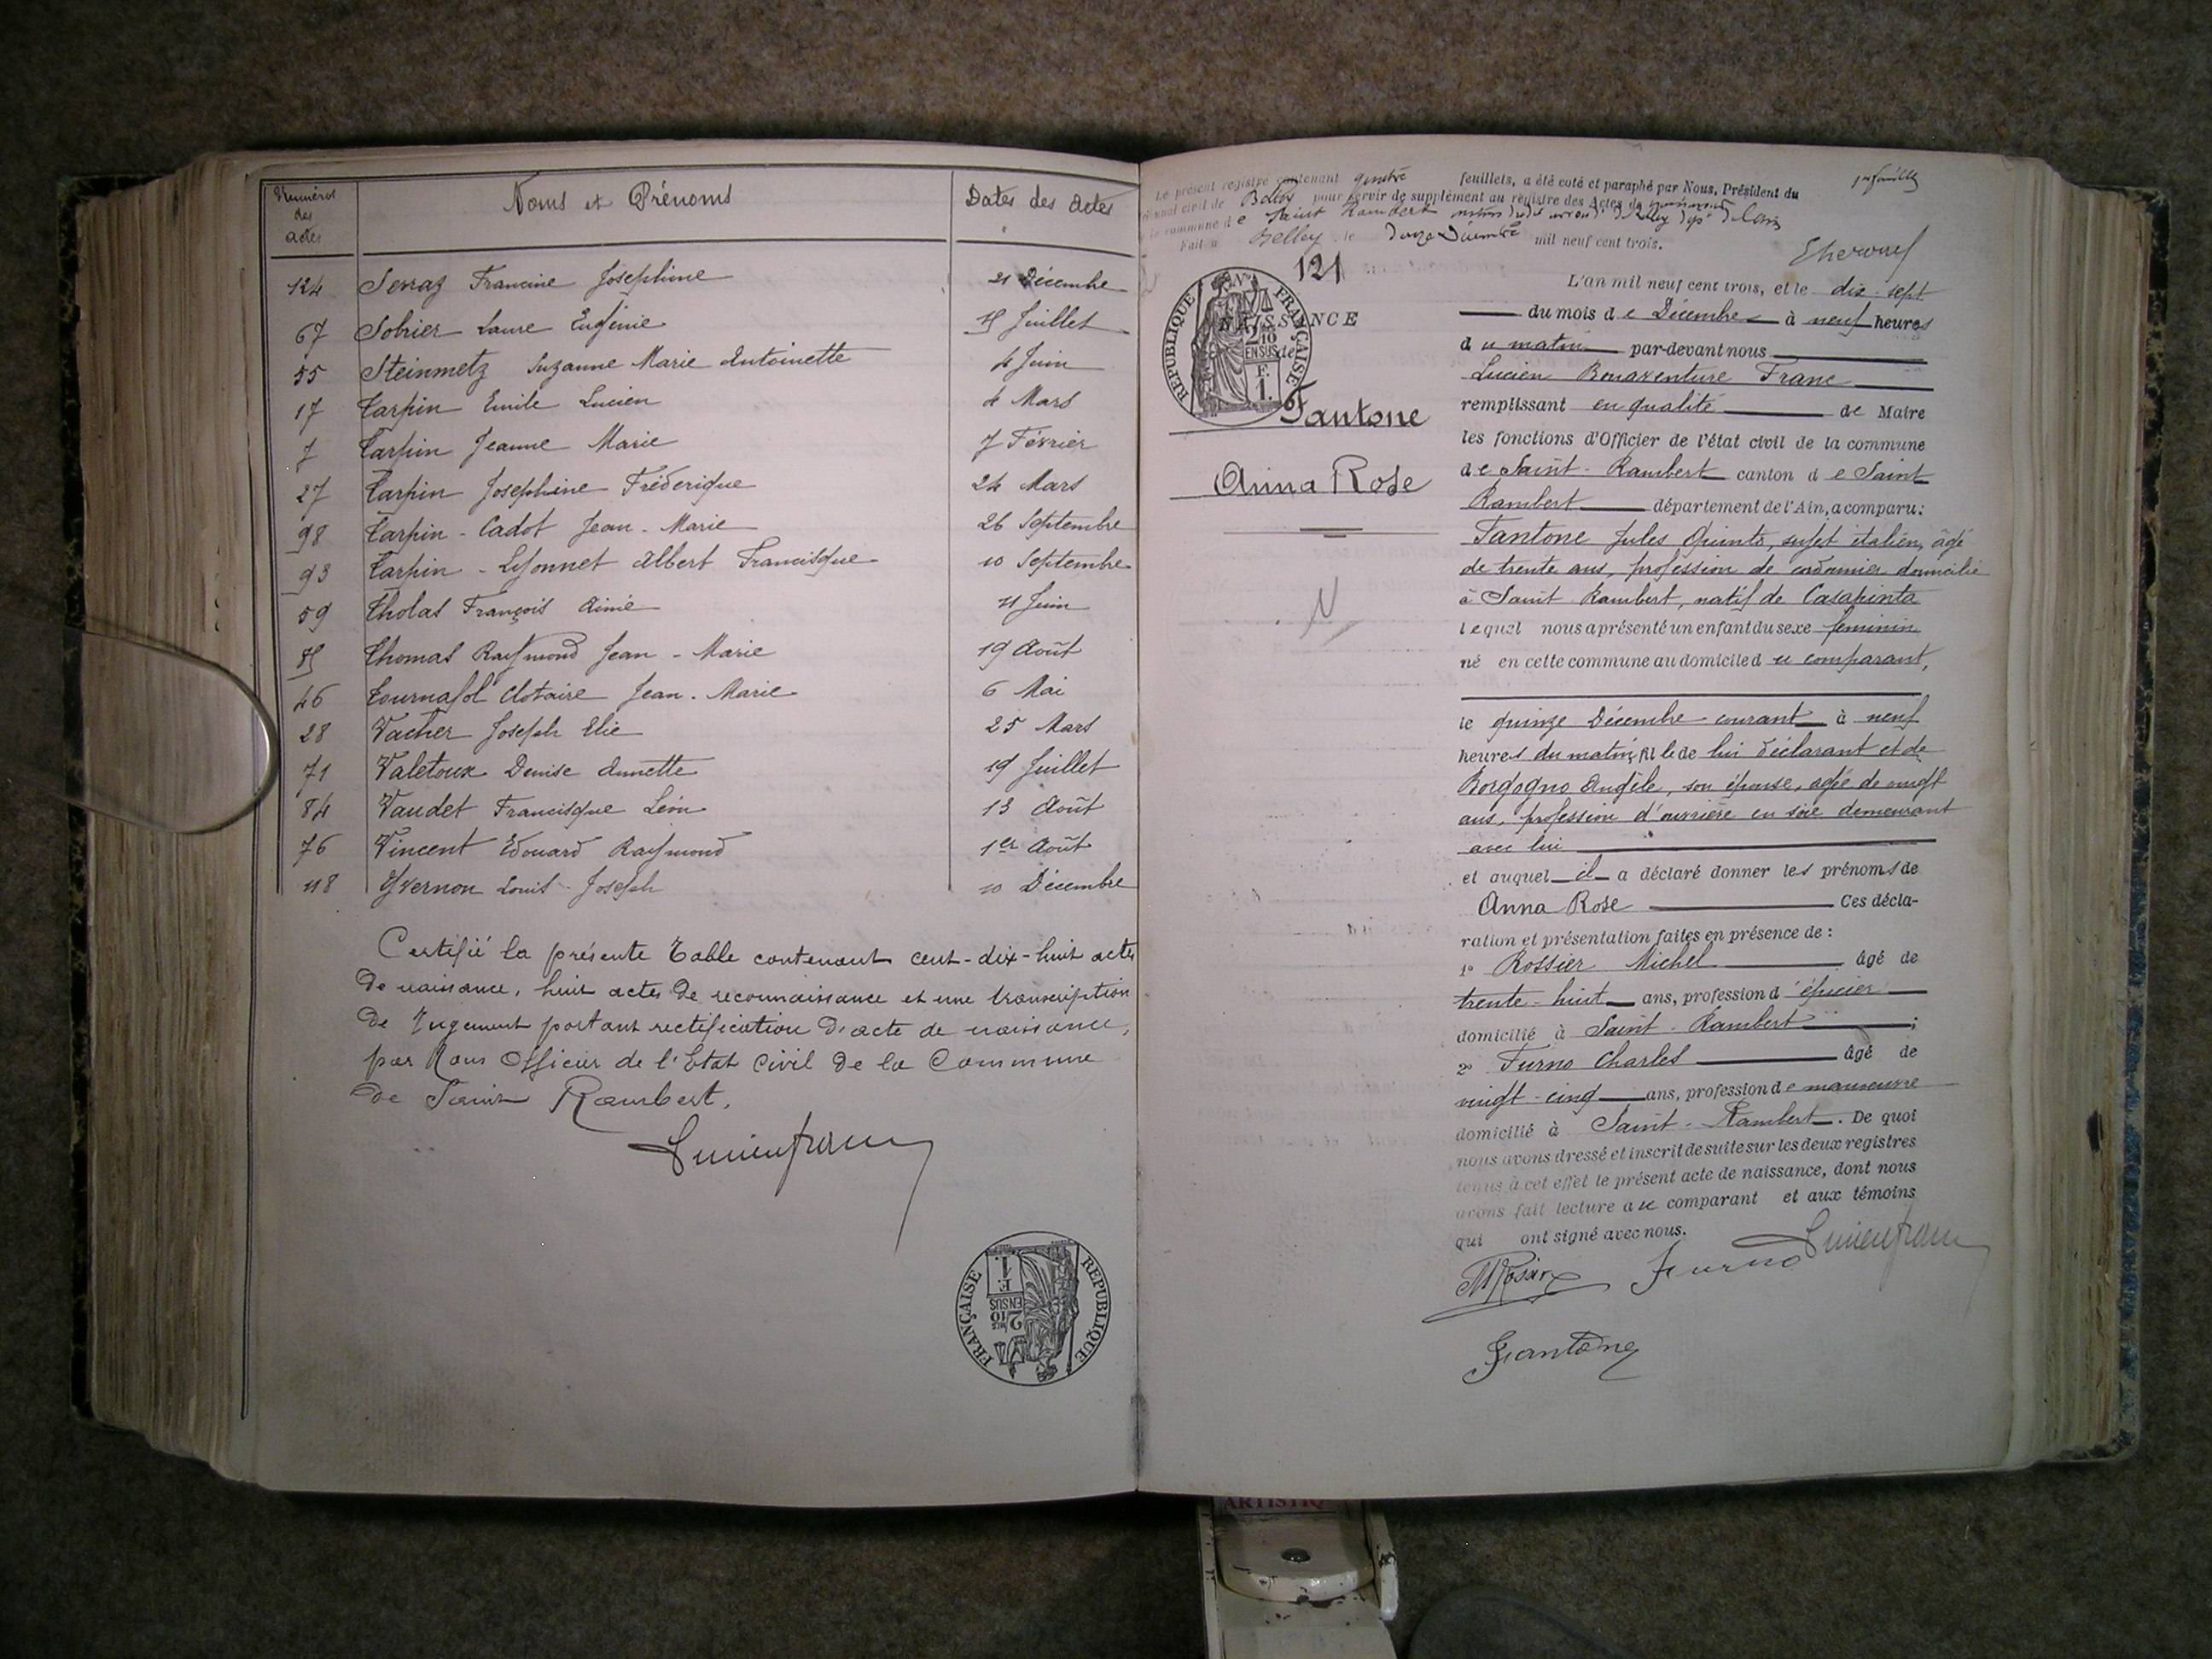 Numéros des actes
Noms et Prénoms
Dates des actes
124 Serraz Francine Josephine 21 Décembre
67 Sobrier Laure Eugénie Juillet
55 Steinmetz Suzanne Marie Antoinette 4 Juin
17 Tarpin Emile Lucien 4 Mars
7 Tarpin Jeanne Marie 7 Février
27 Tarpin Josephine Fréderique 24 Mars
98 Tarpin-Cadot Jean-Marie 26 Septembre
93 Tarpin-Lyonnet Albert Francisque 10 Septembre
59 Tholas François Aimé 11 Juin
85 Thomas Raymond Jean-Marie 19 Août
46 Tournafol Clotaire Jean-Marie 6 Mai
28 Vacher Joseph Elie 25 Mars
71 Valetoux Denise Annette 19 Juillet
84 Vaudet Francisque Léon 13 Août
76 Vincent Edouard Raymond 1er Août
118 Yvernon Louis-Joseph 10 Décembre
Certifié la présente Table contenant cent-dix-huit actes
de naissance, huit actes de reconnaissance et une transcription
de Jugement portant rectification d'acte de naissance,
par Nous Officier de l'Etat Civil de la Commune
de Saint Rambert.
Lucien franc
REPUBLIQUE FRANÇAISE
2/10 EN SUS
1 F.
Le présent registre contenant feuillets, a été coté et paraphé par Nous, Président du
tribunal civil de Belley pour servir de supplément au registre des Actes de
la commune de Saint Rambert
Fait à Belley, le douze Décembre mil neuf cent trois.
1er feuillet
121
REPUBLIQUE FRANÇAISE
2/10 EN SUS
F. 1.
NAISSANCE
de
Fantone
Anna Rose
L'an mil neuf cent trois, et le dix-sept
du mois de Décembre à neuf heures
du matin par-devant nous
Lucien Bonaventure Franc
remplissant en qualité de Maire
les fonctions d'Officier de l'état civil de la commune
de Saint-Rambert canton de Saint
Rambert département de l'Ain, a comparu:
Fantone Jules Quinto, sujet italien, âgé
de trente ans, profession de cordonnier domicilié
à Saint Rambert, natif de Casapinta
lequel nous a présenté un enfant du sexe feminin
né en cette commune au domicile du comparant,
le quinze Décembre courant à neuf
heures du matin, fille de lui déclarant et de
Borgogno Angèle, son épouse, agée de vingt
ans, profession d'ouvrière en soie demeurant
avec lui
et auquel il a déclaré donner les prénoms de
Anna Rose Ces décla-
ration et présentation faites en présence de :
1° Rossier Michel âgé de
trente-huit ans, profession d'épicier
domicilié à Saint-Rambert ;
2° Furno Charles âgé de
vingt-cinq ans, profession de manoeuvre
domicilié à Saint-Rambert. De quoi
nous avons dressé et inscrit de suite sur les deux registres
tenus à cet effet le présent acte de naissance, dont nous
avons fait lecture au comparant et aux témoins
qui ont signé avec nous.
Lucien franc
MRosier Furno
Fantone
ARTISTIQ